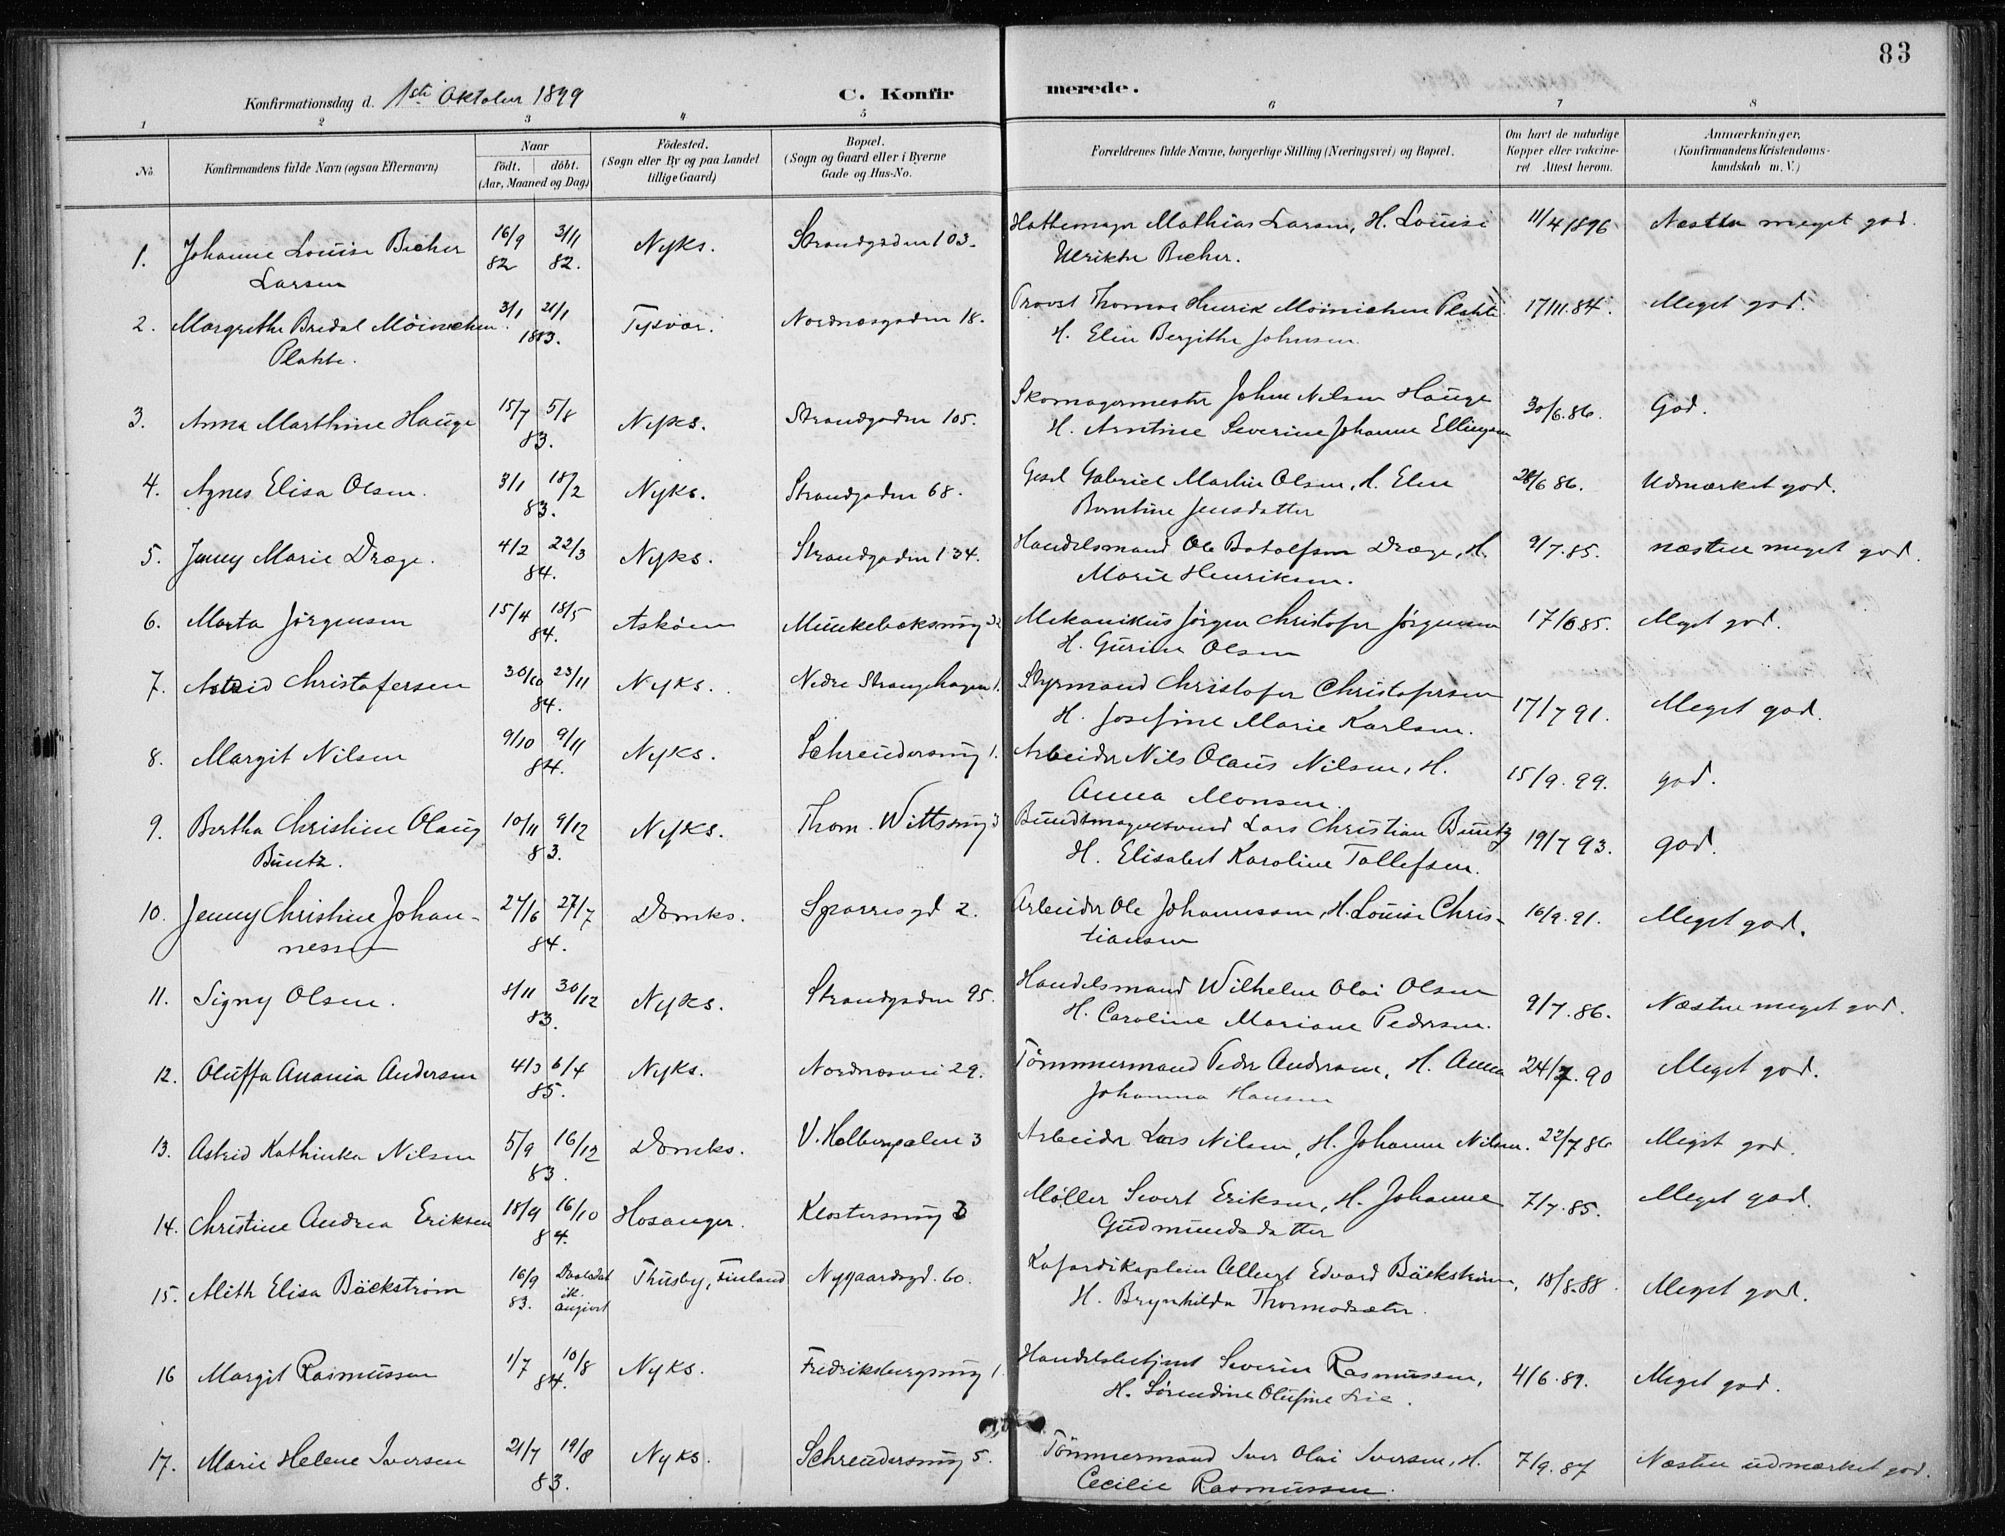 83
Konfirmationsdag d. 1ste Oktober 1899 C. Konfirmerede.
1 2 3 4 5 6 7 8
No. Konfirmandens fulde Navn (ogsaa Efternavn) Naar födt. döbt. (Aar, Maaned og Dag) Födested. (Sogn eller By og paa Landet tillige Gaard) Bopæl. (Sogn og Gaard eller i Byerne Gade og Hus-No. Forældrenes fulde Navne, borgerlige Stilling (Næringsvei) og Bopæl. Om havt de naturlige Kopper eller vaccineret Attest herom. Anmærkninger. (Konfirmandens Kristendomskundskab m. V.)
1. Johanne Louise Becher 16/9 82 3/11 82. Nyks. Strandgaden 103. Hattemager Mathias Larsen, H. Louise 11/4 1896 Næsten meget god.
Larsen Ulrikke Becher.
2. Margrethe Bredal Möinichen 3/1 21/1 1883. Tysvær. Nordnæsgaden 18. Provst Thomas Henrik Möinichen Plahte 17/11.84. Meget god.
Plahte. H. Elen Bergithe Johnsen
3. Anna Marthine Hauge 15/7 5/8 83. Nyks. Strandgaden 105. Skomagermester Johan Nilsen Hauge 30/6.86. God.
H. Arntine Severine Johanne Ellingsen
4. Agnes Elisa Olsen. 3/1 18/2 83. Nyks. Strandgaden 68. Gabriel Martin Olsen, H. Elen 28/6 86. Udmærket god.
Berntine Jensdatter
5. Jenny Marie Dræge. 4/2 22/3 84. Nyks. Strandgaden 134. Handelsmand Ole Botolfsen Dræge, H. 9/7.85. næsten meget god.
Marie Henriksen.
6. Marta Jörgensen 15/4 18/5 84. Asköen Munkebæksmug 32 Mekanikus Jörgen Christofer Jörgensen 17/6 85. Meget god.
H. Gurine Olsen
7. Astrid Christofersen 30/10 23/11 84. Nyks. Nedre Strangehagen 1. Styrmand Christofer Christofersen 17/7 91. Meget god.
H. Josefine Marie Karlsen.
8. Margit Nilsen 9/10 9/11 84. Nyks. Schreudersmug 1. Arbeider Nils Olaus Nilsen, H. 15/9.99. god.
Anna Monsen.
9. Bertha Christine Olaug 10/11 9/12 83. Nyks. Thom. Wittsmug 3 Bundtmagersvend Lars Christian Buntz 19/7 93. god.
Buntz. H. Elisabet Karoline Tollefsen.
10. Jenny Christine Johan- 24/6 27/7 84. Domks. Sparresgd 2. Arbeider Ole Johannessen, H. Louise Chris- 16/9.91. Meget god.
nessen tiansen
11. Signy Olsen. 8/11 30/12 83. Nyks. Strandgaden 95. Handelsmand Wilhelm Olai Olsen 9/7.86. Næsten meget god.
H. Caroline Mariane Pedersen.
12. Oluffa Anania Andersen 4/3 6/4 85. Nyks. Nordnæsvei 29. Tömmermand Peder Andersen, H. Anna 24/7.90 Meget god.
Johanna Hansen
13. Astrid Kathinka Nilsen 5/9 16/12 83. Domks. V. Holbergsalm 3 Arbeider Lars Nilsen, H. Johanne Nilsen. 22/7 86 Meget god.
14. Christine Andrea Eriksen 18/9 16/10 84. Hosanger. Klostersmug 3 Möller Sivert Eriksen, H. Johanne 7/7.85. Meget god.
Gudmundsdatter
15. Alith Elisa Bäckström 16/9 83. Daabsdat. ik. angivet Thusby, Finland Nygaardsgd. 60. Kofardikaptein Albert Edvard Bäckström, 18/8.88 Meget god.
H. Brynhilda Thormodsæter.
16 Margit Rasmussen 1/7 10/8 84. Nyks. Fredriksbergsmug 1 Handelsbetjent Severin Rasmussen, 4/6.89. Meget god.
H. Sörendine Olufine
17. Marie Helene Iversen 21/7 19/8 83. Nyks. Schreudersmug 5. Tömmermand Iver Olai Iversen, H. 7/9.87 Næsten udmærket god.
Cecilie Rasmussen.